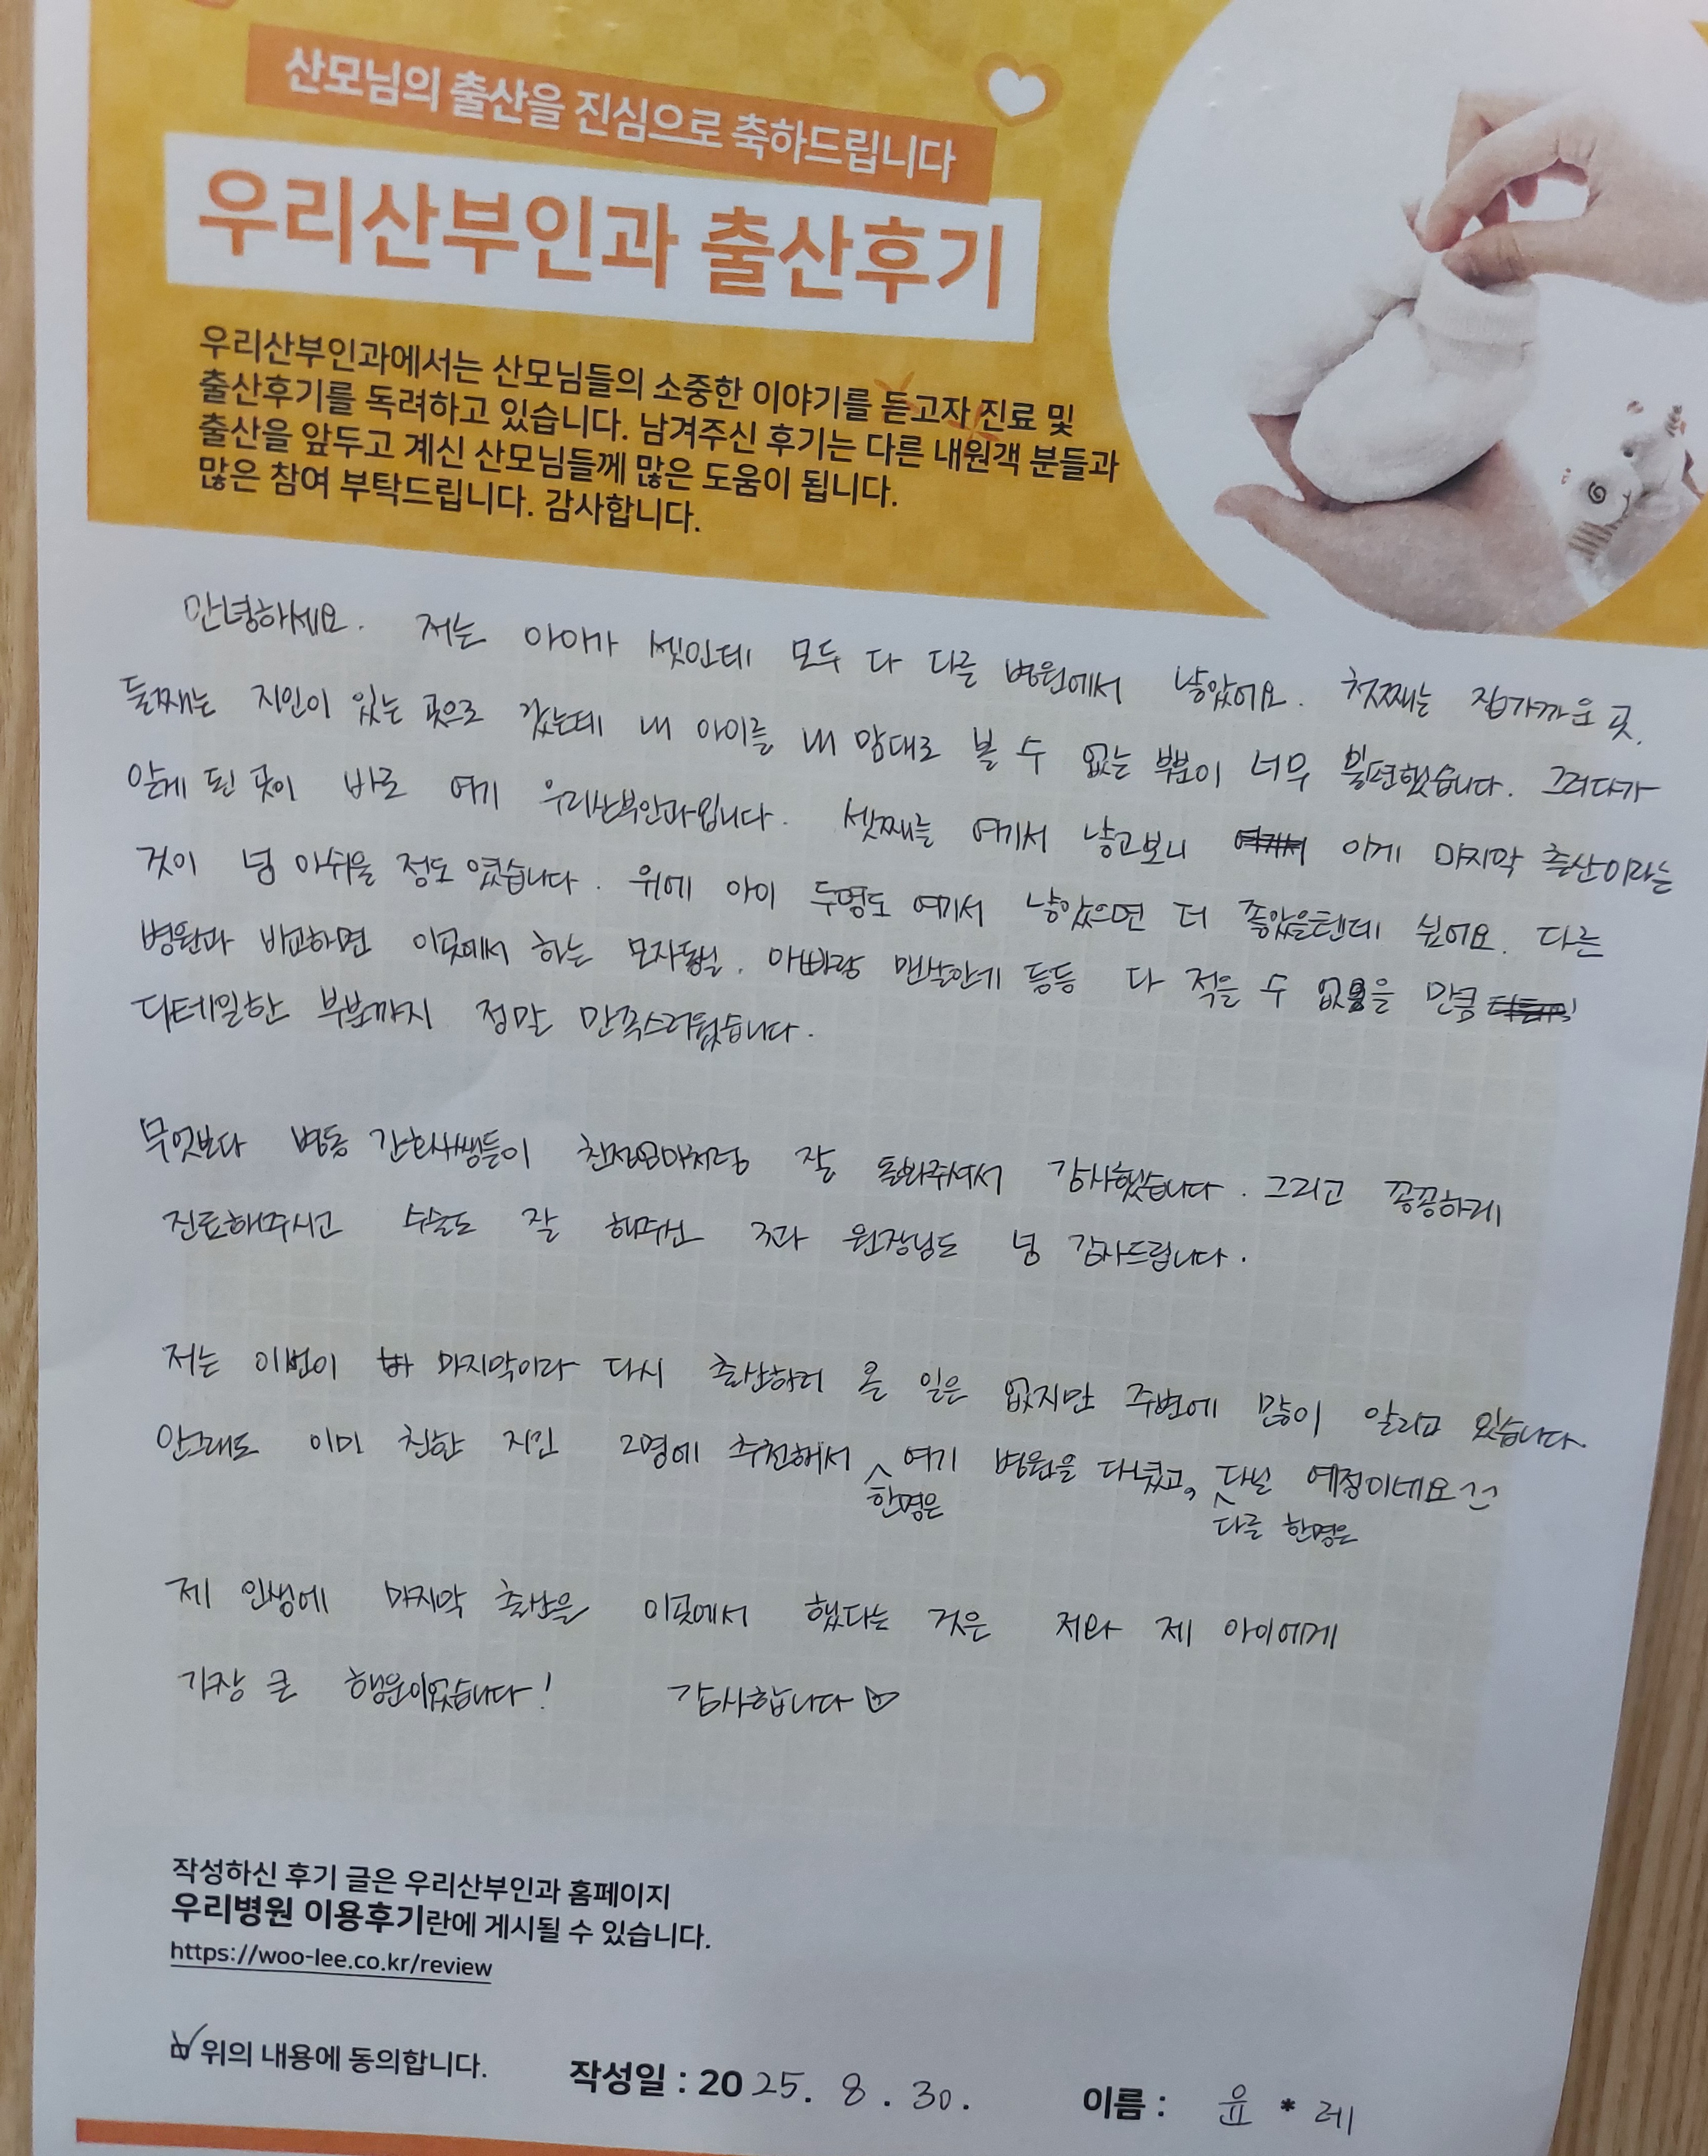 산모님의 출산을 진심으로 축하드립니다
우리산부인과 출산후기
우리산부인과에서는 산모님들의 소중한 이야기를 듣고자 진료 및
출산후기를 독려하고 있습니다. 남겨주신 후기는 다른 내원객 분들과
출산을 앞두고 계신 산모님들께 많은 도움이 됩니다.
많은 참여 부탁드립니다. 감사합니다.
안녕하세요. 저는 아이가 셋인데 모두 다 다른 병원에서 낳았어요. 첫째는 집가까운 곳,
둘째는 지인이 있는 곳으로 갔는데 내 아이를 내 맘대로 볼 수 없는 부분이 너무 불편했습니다. 그러다가
알게 된 곳이 바로 여기 우리산부인과입니다. 셋째를 여기서 낳고보니 이게 마지막 출산이라는
것이 넘 아쉬울 정도였습니다. 위에 아이 두명도 여기서 낳았으면 더 좋았을텐데 싶어요. 다른
병원과 비교하면 이곳에서 하는 모자동실, 아빠랑 맨살안기 등등 다 적을 수 없을 만큼
디테일한 부분까지 정말 만족스러웠습니다.
무엇보다 병동 간호사쌤들이 친정엄마처럼 잘 돌봐주셔서 감사했습니다. 그리고 꼼꼼하게
진료해주시고 수술도 잘 해주신 3과 원장님도 넘 감사드립니다.
저는 이번이 마지막이라 다시 출산하러 올 일은 없지만 주변에 많이 알리고 있습니다.
안그래도 이미 친한 지인 2명에 추천해서 ^ 여기 병원을 다녔고, ^ 다닐 예정이네요^^
한명은 다른 한명은
제 인생에 마지막 출산을 이곳에서 했다는 것은 저와 제 아이에게
가장 큰 행운이었습니다! 감사합니다♡
작성하신 후기 글은 우리산부인과 홈페이지
우리병원 이용후기란에 게시될 수 있습니다.
https://woo-lee.co.kr/review
위의 내용에 동의합니다. 작성일 : 2025. 8. 30. 이름 : 윤 * 레